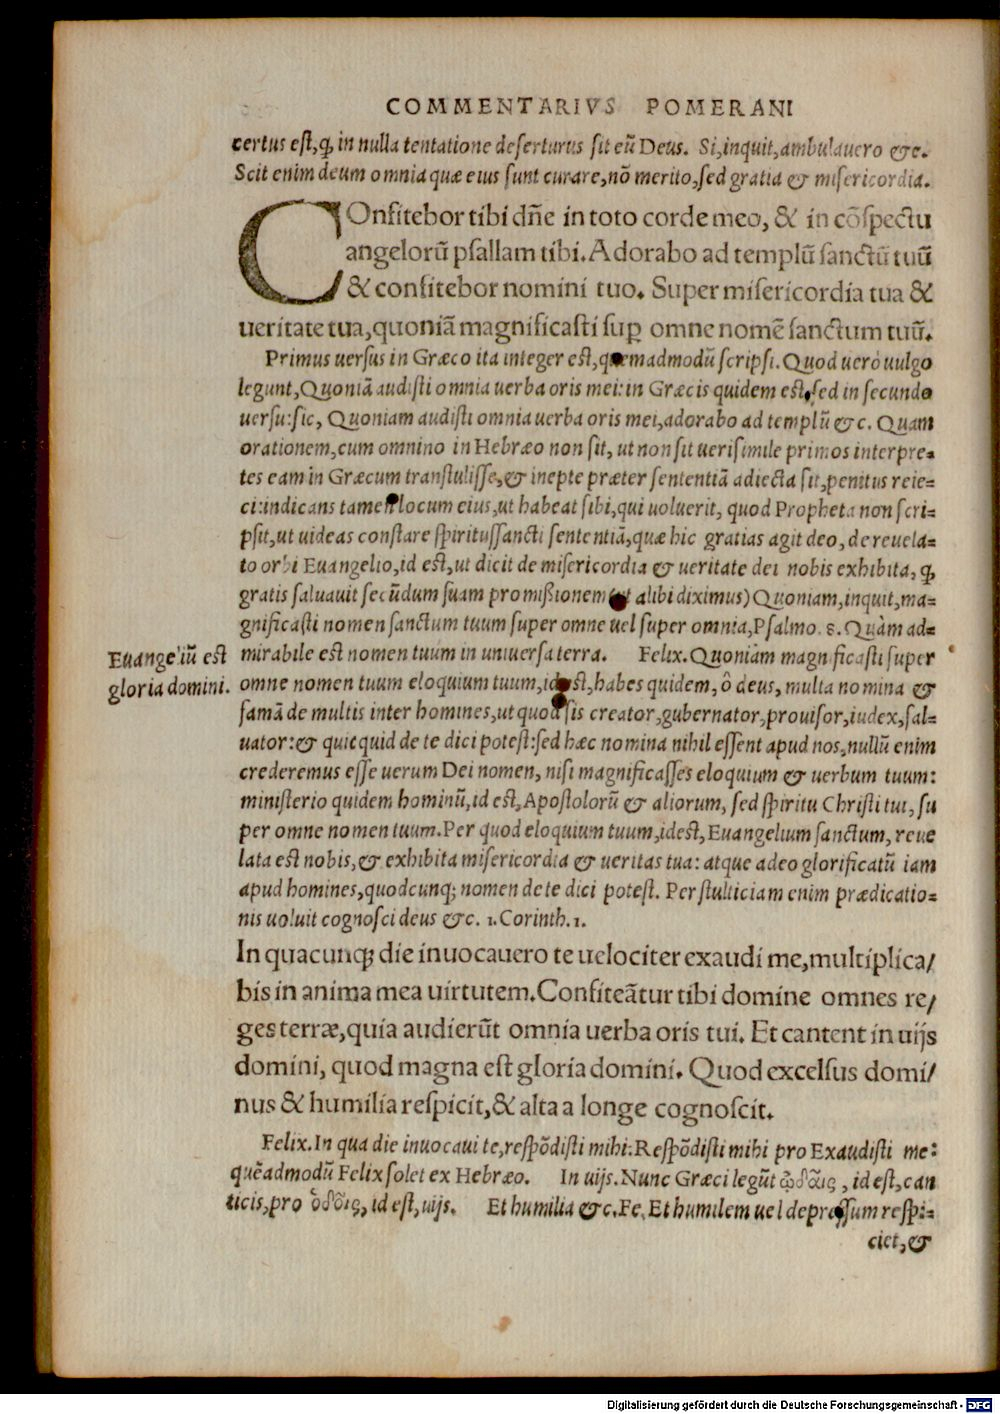 COMMENTARIVS POMERANI
certus est, ꝙ in nulla tentatione deserturus sit eū Deus. Si, inquit, ambulauero &c.
Scit enim deum omnia quæ eius sunt curare, nō merito, sed gratia & misericordia.
COnfitebor tibi dñe in toto corde meo, & in cōspectu
angelorū psallam tibi. Adorabo ad templū sanctū tuū
& confitebor nomini tuo. Super misericordia tua &
ueritate tua, quoniā magnificasti suꝑ omne nomē sanctum tuū.
Primus uersus in Græco ita integer est, quemadmodū scripsi. Quod uero uulgo
legunt, Quoniā audisti omnia uerba oris mei: in Græcis quidem est, sed in secundo
uersu: sic, Quoniam audisti omnia uerba oris mei, adorabo ad templū &c. Quam
orationem, cum omnino in Hebræo non sit, ut non sit uerisimile primos interpre=
tes eam in Græcum transtulisse, & inepte præter sententiā adiecta sit, penitus reie=
ci: indicans tamen locum eius, ut habeat sibi, qui uoluerit, quod Propheta non scri=
psit, ut uideas constare spiritussancti sententiā, quæ hic gratias agit deo, de reuela=
to orbi Euangelio, id est, ut dicit de misericordia & ueritate dei nobis exhibita, ꝙ
gratis saluauit secūdum suam promißionem (ut alibi diximus) Quoniam, inquit, ma=
gnificasti nomen sanctum tuum super omne uel super omnia, Psalmo. 8. Quàm ad=
mirabile est nomen tuum in uniuersa terra. Felix. Quoniam magnificasti super
Euangeliū est
gloria domini.
omne nomen tuum eloquium tuum, id est, habes quidem, ô deus, multa nomina &
famā de multis inter homines, ut quod sis creator, gubernator, prouisor, iudex, sal=
uator: & quicquid de te dici potest: sed hæc nomina nihil essent apud nos, nullū enim
crederemus esse uerum Dei nomen, nisi magnificasses eloquium & uerbum tuum:
ministerio quidem hominū, id est, Apostolorū & aliorum, sed spiritu Christi tui, su
per omne nomen tuum. Per quod eloquium tuum, idest, Euangelium sanctum, reue
lata est nobis, & exhibita misericordia & ueritas tua: atque adeo glorificatū iam
apud homines, quodcunq; nomen de te dici potest. Per stulticiam enim prædicatio=
nis uoluit cognosci deus &c. 1. Corinth. 1.
In quacunq; die inuocauero te uelociter exaudi me, multiplica/
bis in anima mea uirtutem. Confiteātur tibi domine omnes re/
ges terræ, quia audierūt omnia uerba oris tui. Et cantent in uijs
domini, quod magna est gloria domini. Quod excelsus domi/
nus & humilia respicit, & alta a longe cognoscit.
Felix. In qua die inuocaui te, respōdisti mihi: Respōdisti mihi pro Exaudisti me:
quēadmodū Felix solet ex Hebræo. In uijs. Nunc Græci legūt ᾠδαῖς, id est, can
ticis, pro ὁδοῖς, id est, uijs. Et humilia &c. Fe. Et humilem uel depressum respi=
ciet, &
Digitalisierung gefördert durch die Deutsche Forschungsgemeinschaft - DFG